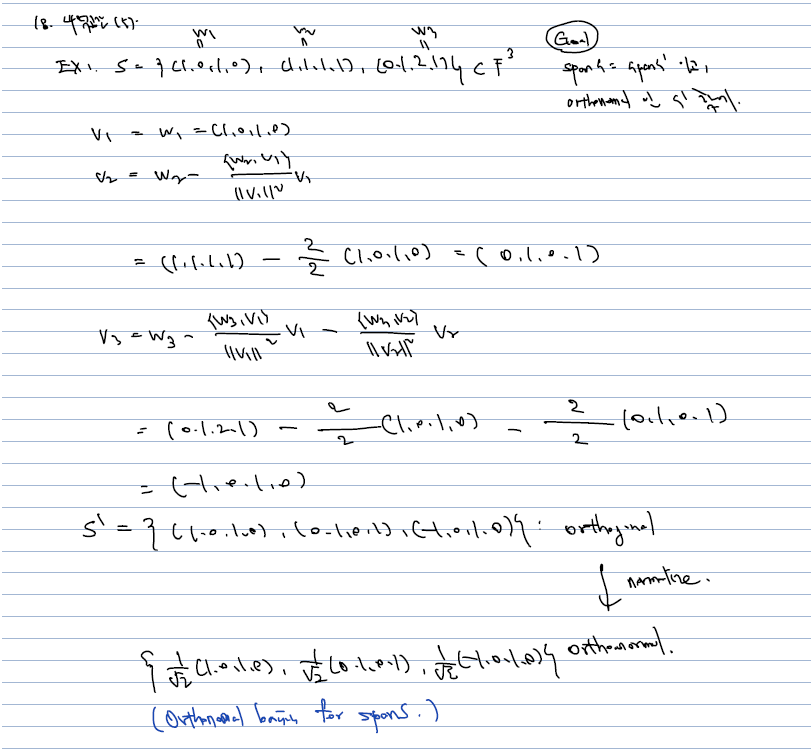 18. 내적공간 (5).
w₁ w₂ w₃
Ex1. S = {(1,0,1,0), (1,1,1,1), (0,1,2,1)} ⊂ F³
Goal
span S = span S' 인,
orthonormal 인 S' 찾기.
v₁ = w₁ = (1,0,1,0)
v₂ = w₂ - <w₂,v₁>/||v₁||² v₁
= (1,1,1,1) - 2/2 (1,0,1,0) = (0,1,0,1)
v₃ = w₃ - <w₃,v₁>/||v₁||² v₁ - <w₃,v₂>/||v₂||² v₂
= (0,1,2,1) - 2/2 (1,0,1,0) - 2/2 (0,1,0,1)
= (-1,0,1,0)
S' = {(1,0,1,0), (0,1,0,1), (-1,0,1,0)} : orthogonal
↓ normalize.
{1/√2 (1,0,1,0), 1/√2 (0,1,0,1), 1/√2 (-1,0,1,0)} orthonormal.
(Orthonormal basis for span S.)